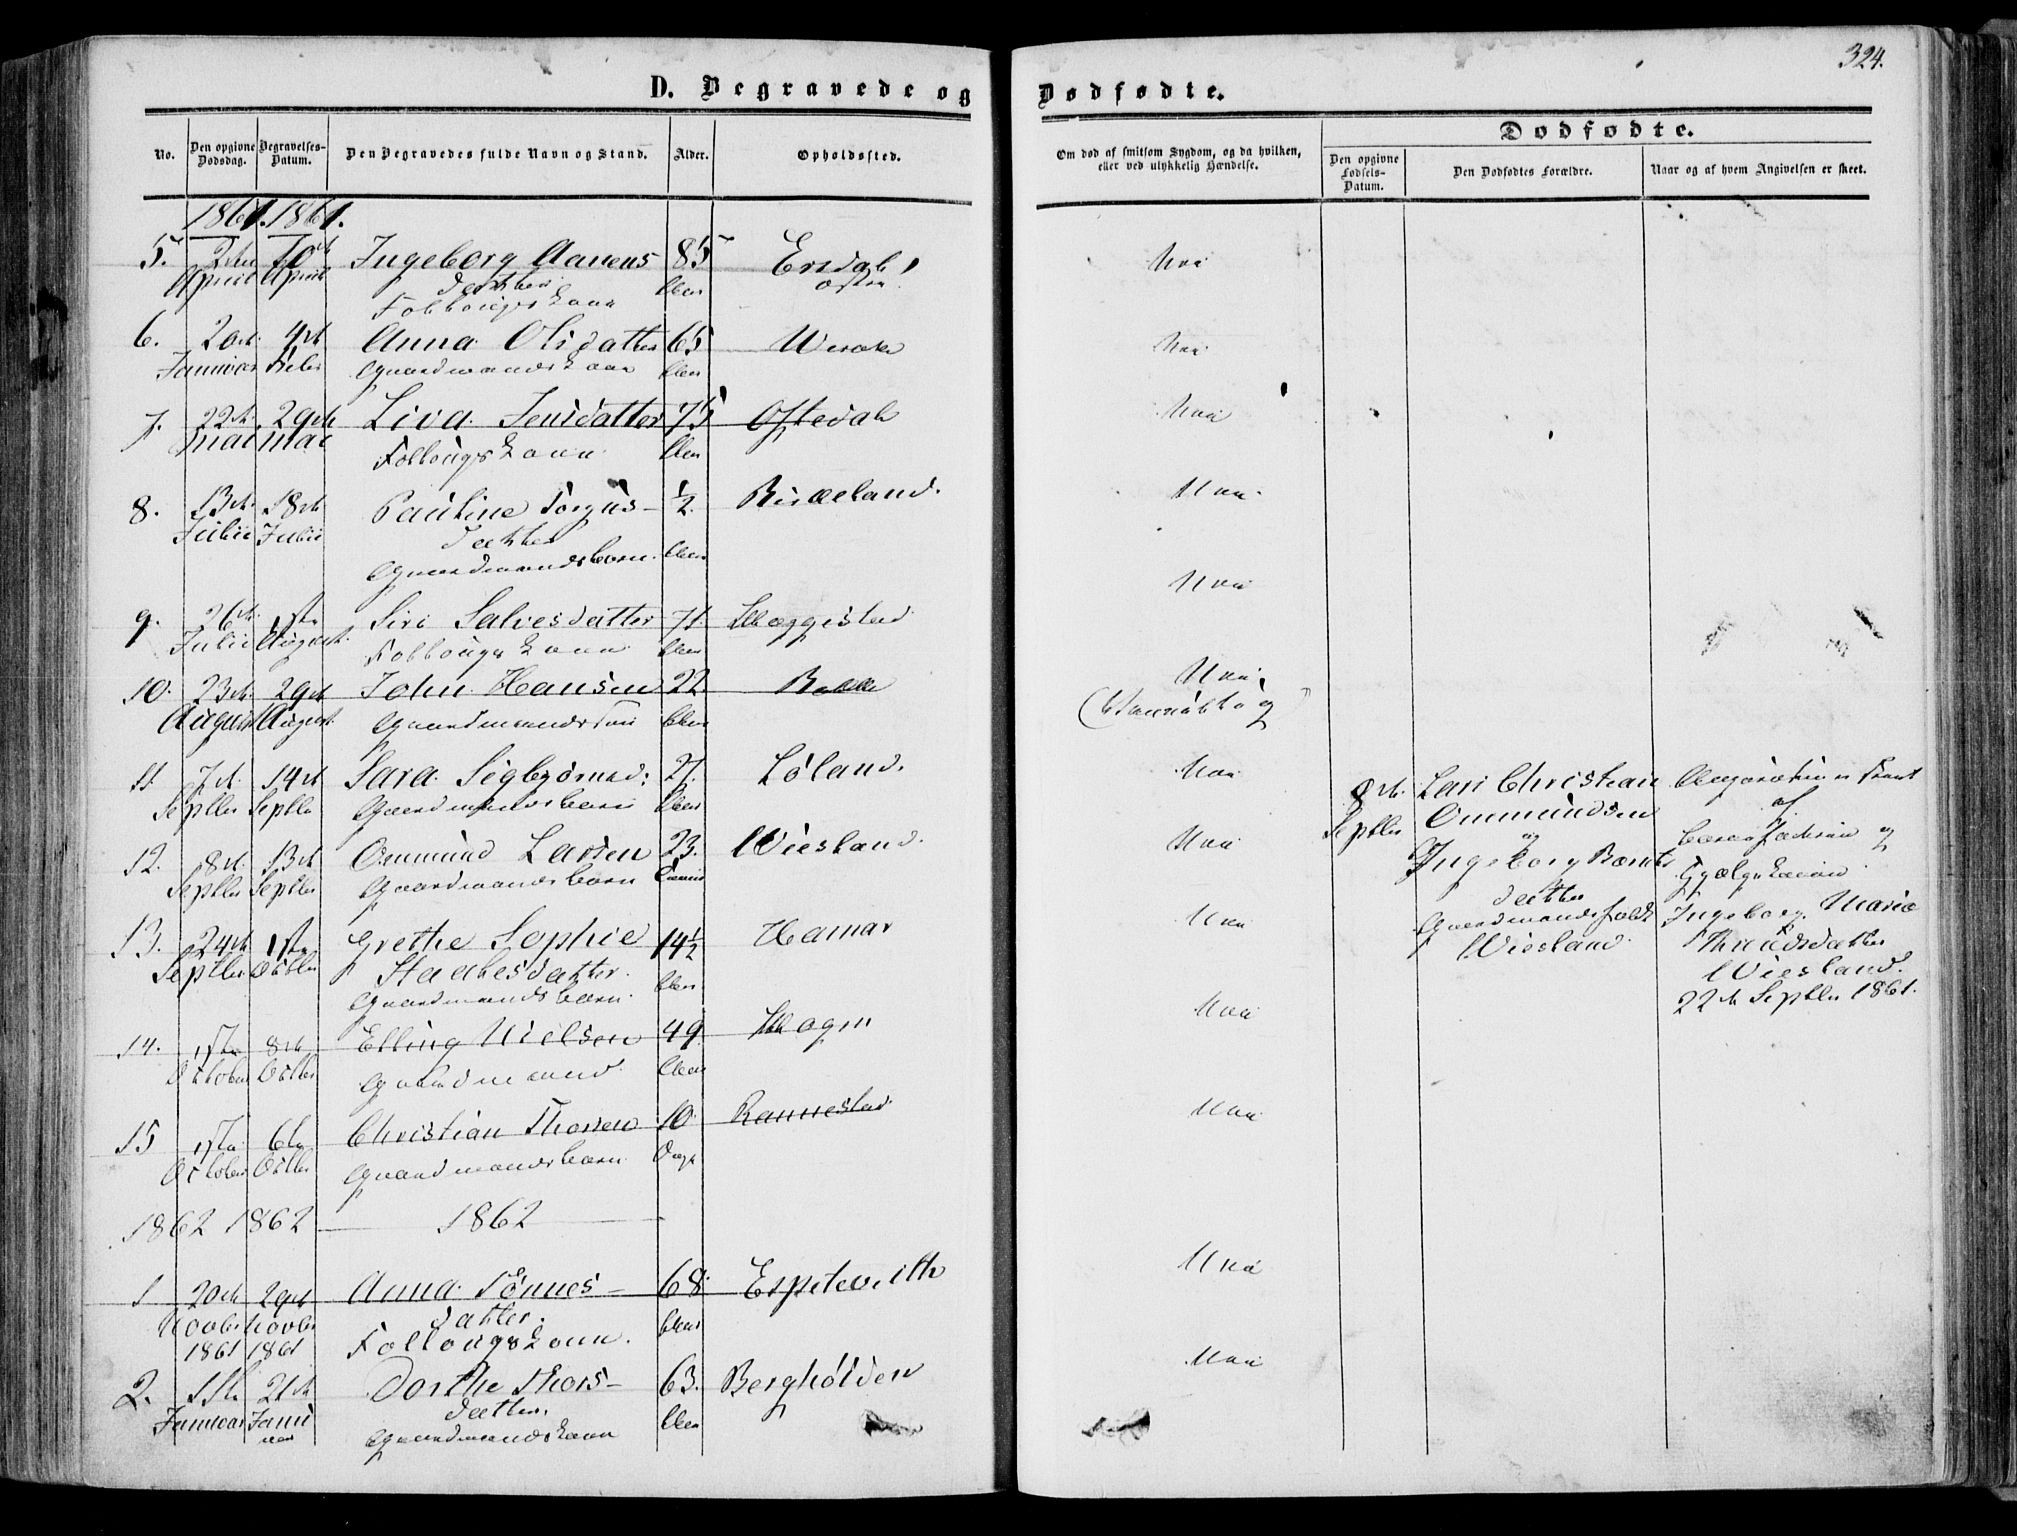 324.
D. Begravede og Dødfødte.
No.
Den opgivne Dødsdag.
Begravelses-Datum.
Den Begravedes fulde Navn og Stand.
Alder.
Opholdssted.
Om død af smitsom Sygdom, og da hvilken, eller ved ulykkelig Hændelse.
Dødfødte.
Den opgivne Fødsels-Datum.
Den Dødfødtes Forældre.
Naar og af hvem Angivelsen er skeet.
1861. 1861.
5. 2den 10de Ingeborg Aanens 85 Ersdal,
April April datter Aar østre.
Follougskone
6. 20de 4de Anna Olsdatter 65
Januar Febr Gaardmandskone Aar
7. 22de 29de Liva Jensdatter 75 Oftedal
Mai Mai Follougskone Aar
8. 13de 18de Pauline Torgus- 1/2 Risæland.
Julii Julii datter
Gaardmandsbarn. Aar
9. 26de 1ste Siri Salvesdatter 71. Skeggestad
Julii August. Follougskone Aar
10. 23de 29de John Hansen 22 Bakke
August August Gaardmandssøn Aar
11. 7de 14de Sara Sigbjørnsd: 21. Løland.
Septbr Septbr Gaardmandsbarn Aar
12. 8de 13de Ommund Larsen 23. Wiesland.
Septbr Septbr Gaardmandsbarn
13. 24de 1ste Grethe Sophie 14 1/2 Hamar
Septbr Octbr Staalesdatter. Aar
Gaardmandsbarn.
14. 1ste 8de Elling Nielsen 49.
October Octbr Gaardmand. Aar
15 1ste 6te Christian Thorsen 10. Rannestad
October Octbr Gaardmandsbarn Dage
1862 1862 1862
1 20de 29de Anna Tønnes- 68. Espetveith
Novbr Novbr datter. Aar
1861 1861 Follougskone.
2. 11te 21de Dorthe Thors- 63. Berghølden
Januar Janu datter. Aar
uar Gaardmandskone
Nei
Nei
Nei
Nei.
Nei
Nei.
Nei
Nei
Nei
Nei
Nei
Nei
Nei
8de Lars Christian
Septbr Ommundsen
og
Ingeborg Bernts
datter
Gaardmandsfolk
Wiesland.
af
Barnefaderen og
Ingeborg Marie
Thrudsdatter
Wiesland.
22de Septbr 1861.